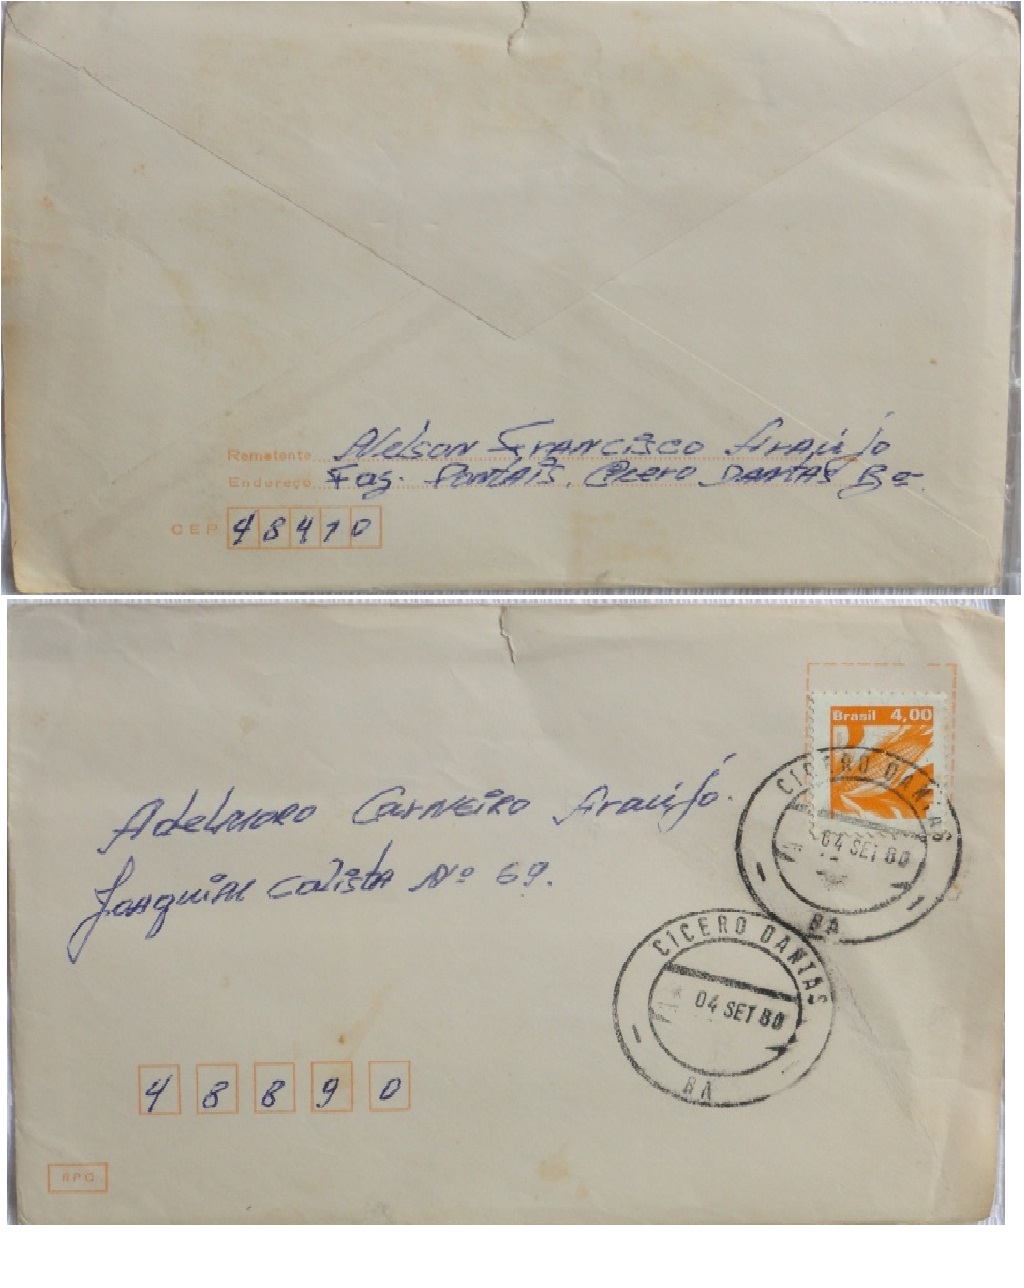 Remetente Nelson Francisco Araújo
Endereço Faz. Pontais, Cícero Dantas Ba
CEP 48410
Brasil 4,00
CICERO DANTAS
04 SET 80
BA
Adelmoro Carneiro Araújo.
Joaquim Calista Nº 69.
CICERO DANTAS
04 SET 80
BA
4 8 8 9 0
RPC